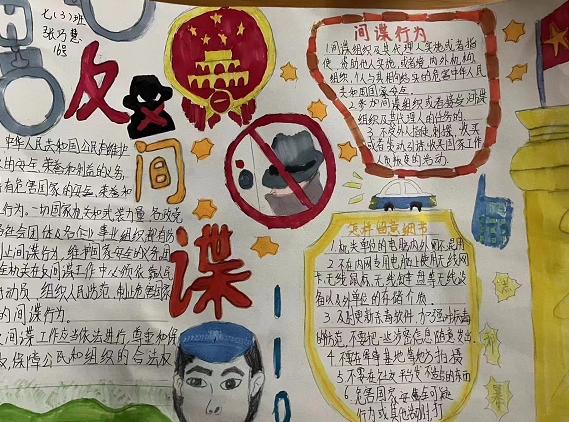 七(3)班
张巧慧
16号
反
间
谍
中华人民共和国公民有维护
国家的安全、荣誉和利益的义务,
有危害国家的安全、荣誉和
行为。一切国家机关和武装力量、各政党
社会团体及各企事业组织,都有防
制止间谍行为,维护国家安全的义务。国
安全机关在反间谍工作中必须依靠人民
动员、组织人民防范、制止危害国家
的间谍行为。
间谍工作应当依法进行,尊重和保
权,保障公民和组织的合法权
间谍行为
1.间谍组织及其代理人实施或者指
使、资助他人实施,或者境内外机构、
组织、个人与其相勾结实施的危害中华人民
共和国国家安全.
2.参加间谍组织或者接受间谍
组织及其代理人的任务的.
3.
或者策动、引诱、收买国家工作
人员叛变的活动.
怎样留意细节
1.机关单位的电脑内外网不混用
2.不在内网专用电脑上使用无线网
卡、无线鼠标、无线键盘等无线设
备以及外单位的存储介质
3.及时更新杀毒软件,加强计病毒
的防范,不要把一些涉密信息随意发出.
4.不要在军事基地等地方拍摄
5.不要在社交平台发不当的东西
6.危害国家安全可疑
行为或其他
12
10